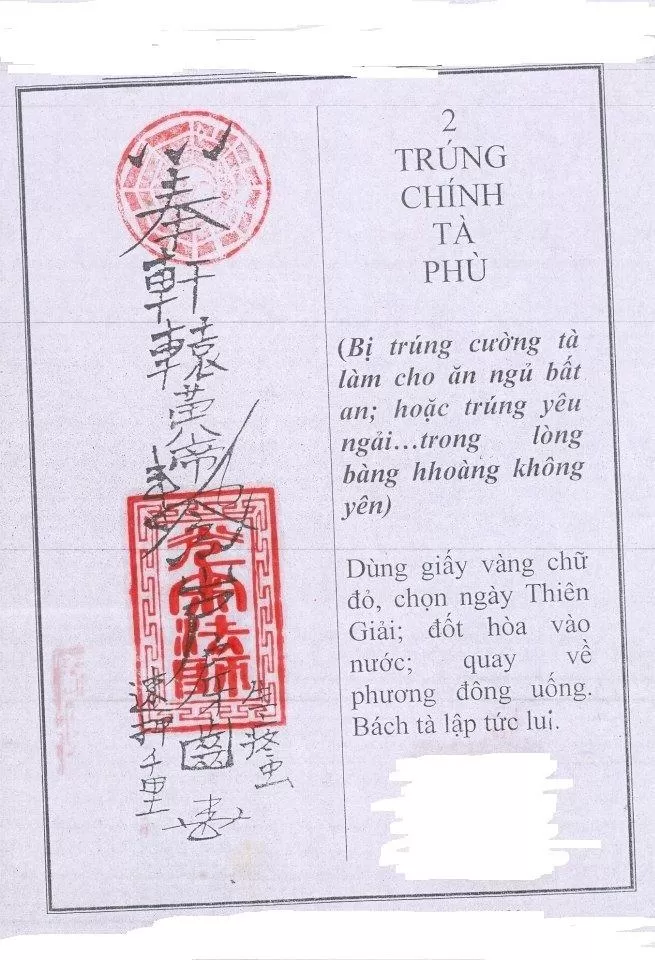 奉
軒
轅
黃
帝
法師
千里
2
TRÚNG
CHÍNH
TÀ
PHÙ
(Bị trúng cường tà
làm cho ăn ngủ bất
an; hoặc trúng yêu
ngải...trong lòng
bàng hhoàng không
yên)
Dùng giấy vàng chữ
đỏ, chọn ngày Thiên
Giải; đốt hòa vào
nước; quay về
phương đông uống.
Bách tà lập tức lui.